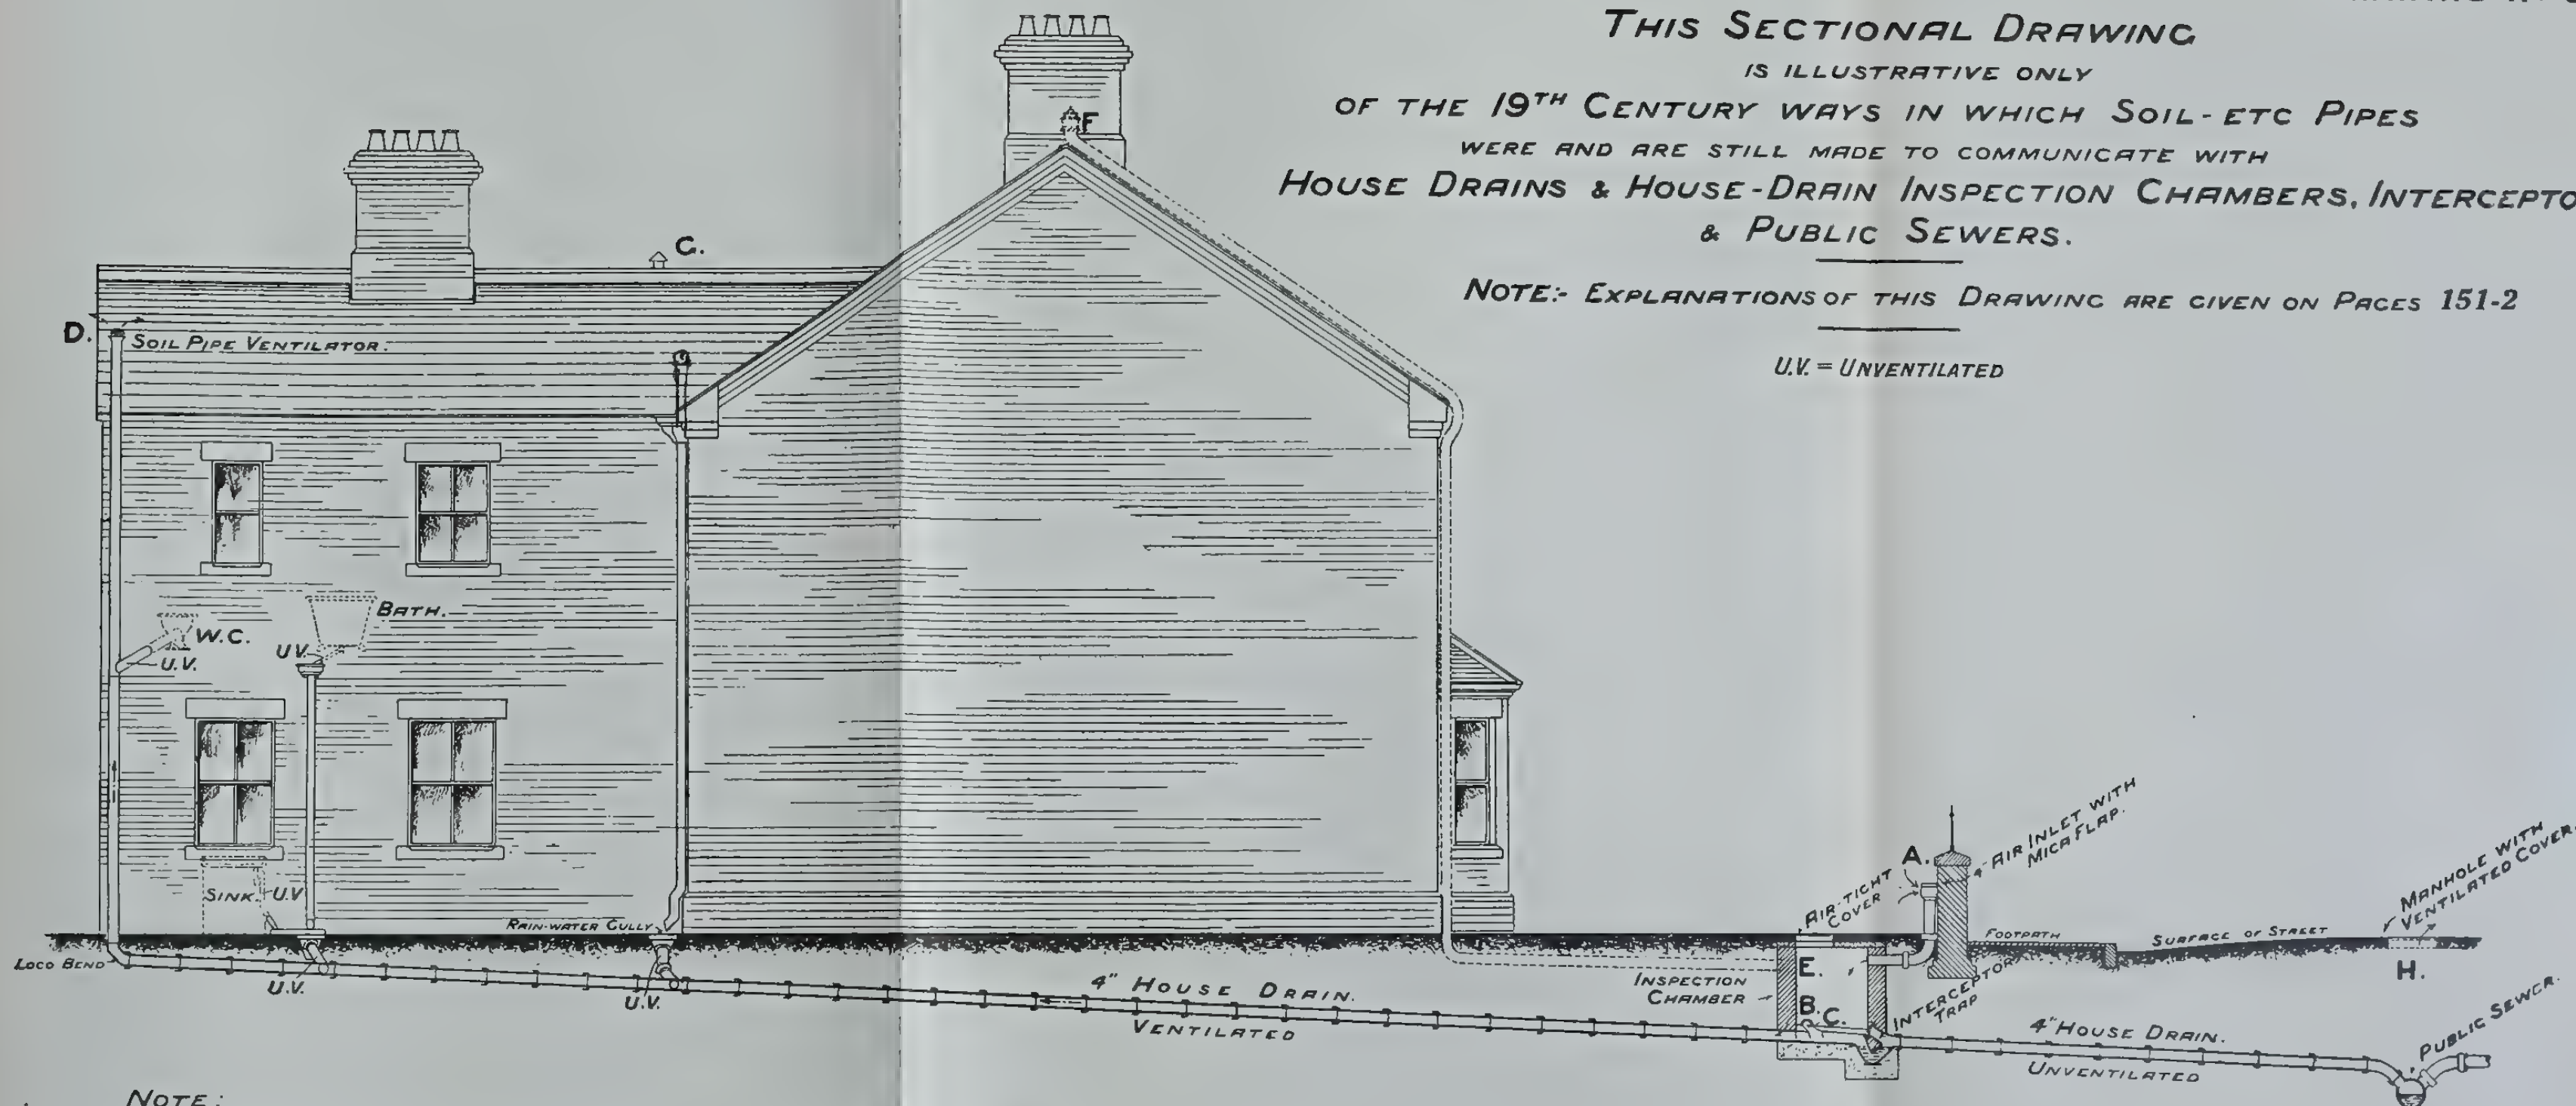 THIS SECTIONAL DRAWING
IS ILLUSTRATIVE ONLY
OF THE 19TH CENTURY WAYS IN WHICH SOIL-ETC PIPES
WERE AND ARE STILL MADE TO COMMUNICATE WITH
HOUSE DRAINS & HOUSE-DRAIN INSPECTION CHAMBERS, INTERCEPTO
& PUBLIC SEWERS.
NOTE:- EXPLANATIONS OF THIS DRAWING ARE GIVEN ON PAGES 151-2
U.V. = UNVENTILATED
F
G.
D.
SOIL PIPE VENTILATOR.
BATH.
W.C.
U.V.
U.V.
SINK.
U.V.
RAIN-WATER GULLY
LOCO BEND
U.V.
U.V.
4" HOUSE DRAIN.
VENTILATED
INSPECTION
CHAMBER
AIR-TIGHT
COVER
A.
4" AIR INLET WITH
MICA FLAP.
E.
B.
C.
INTERCEPTOR
TRAP
FOOTPATH
SURFACE OF STREET
MANHOLE WITH
VENTILATED COVER.
H.
4" HOUSE DRAIN.
UNVENTILATED
PUBLIC SEWER.
NOTE: